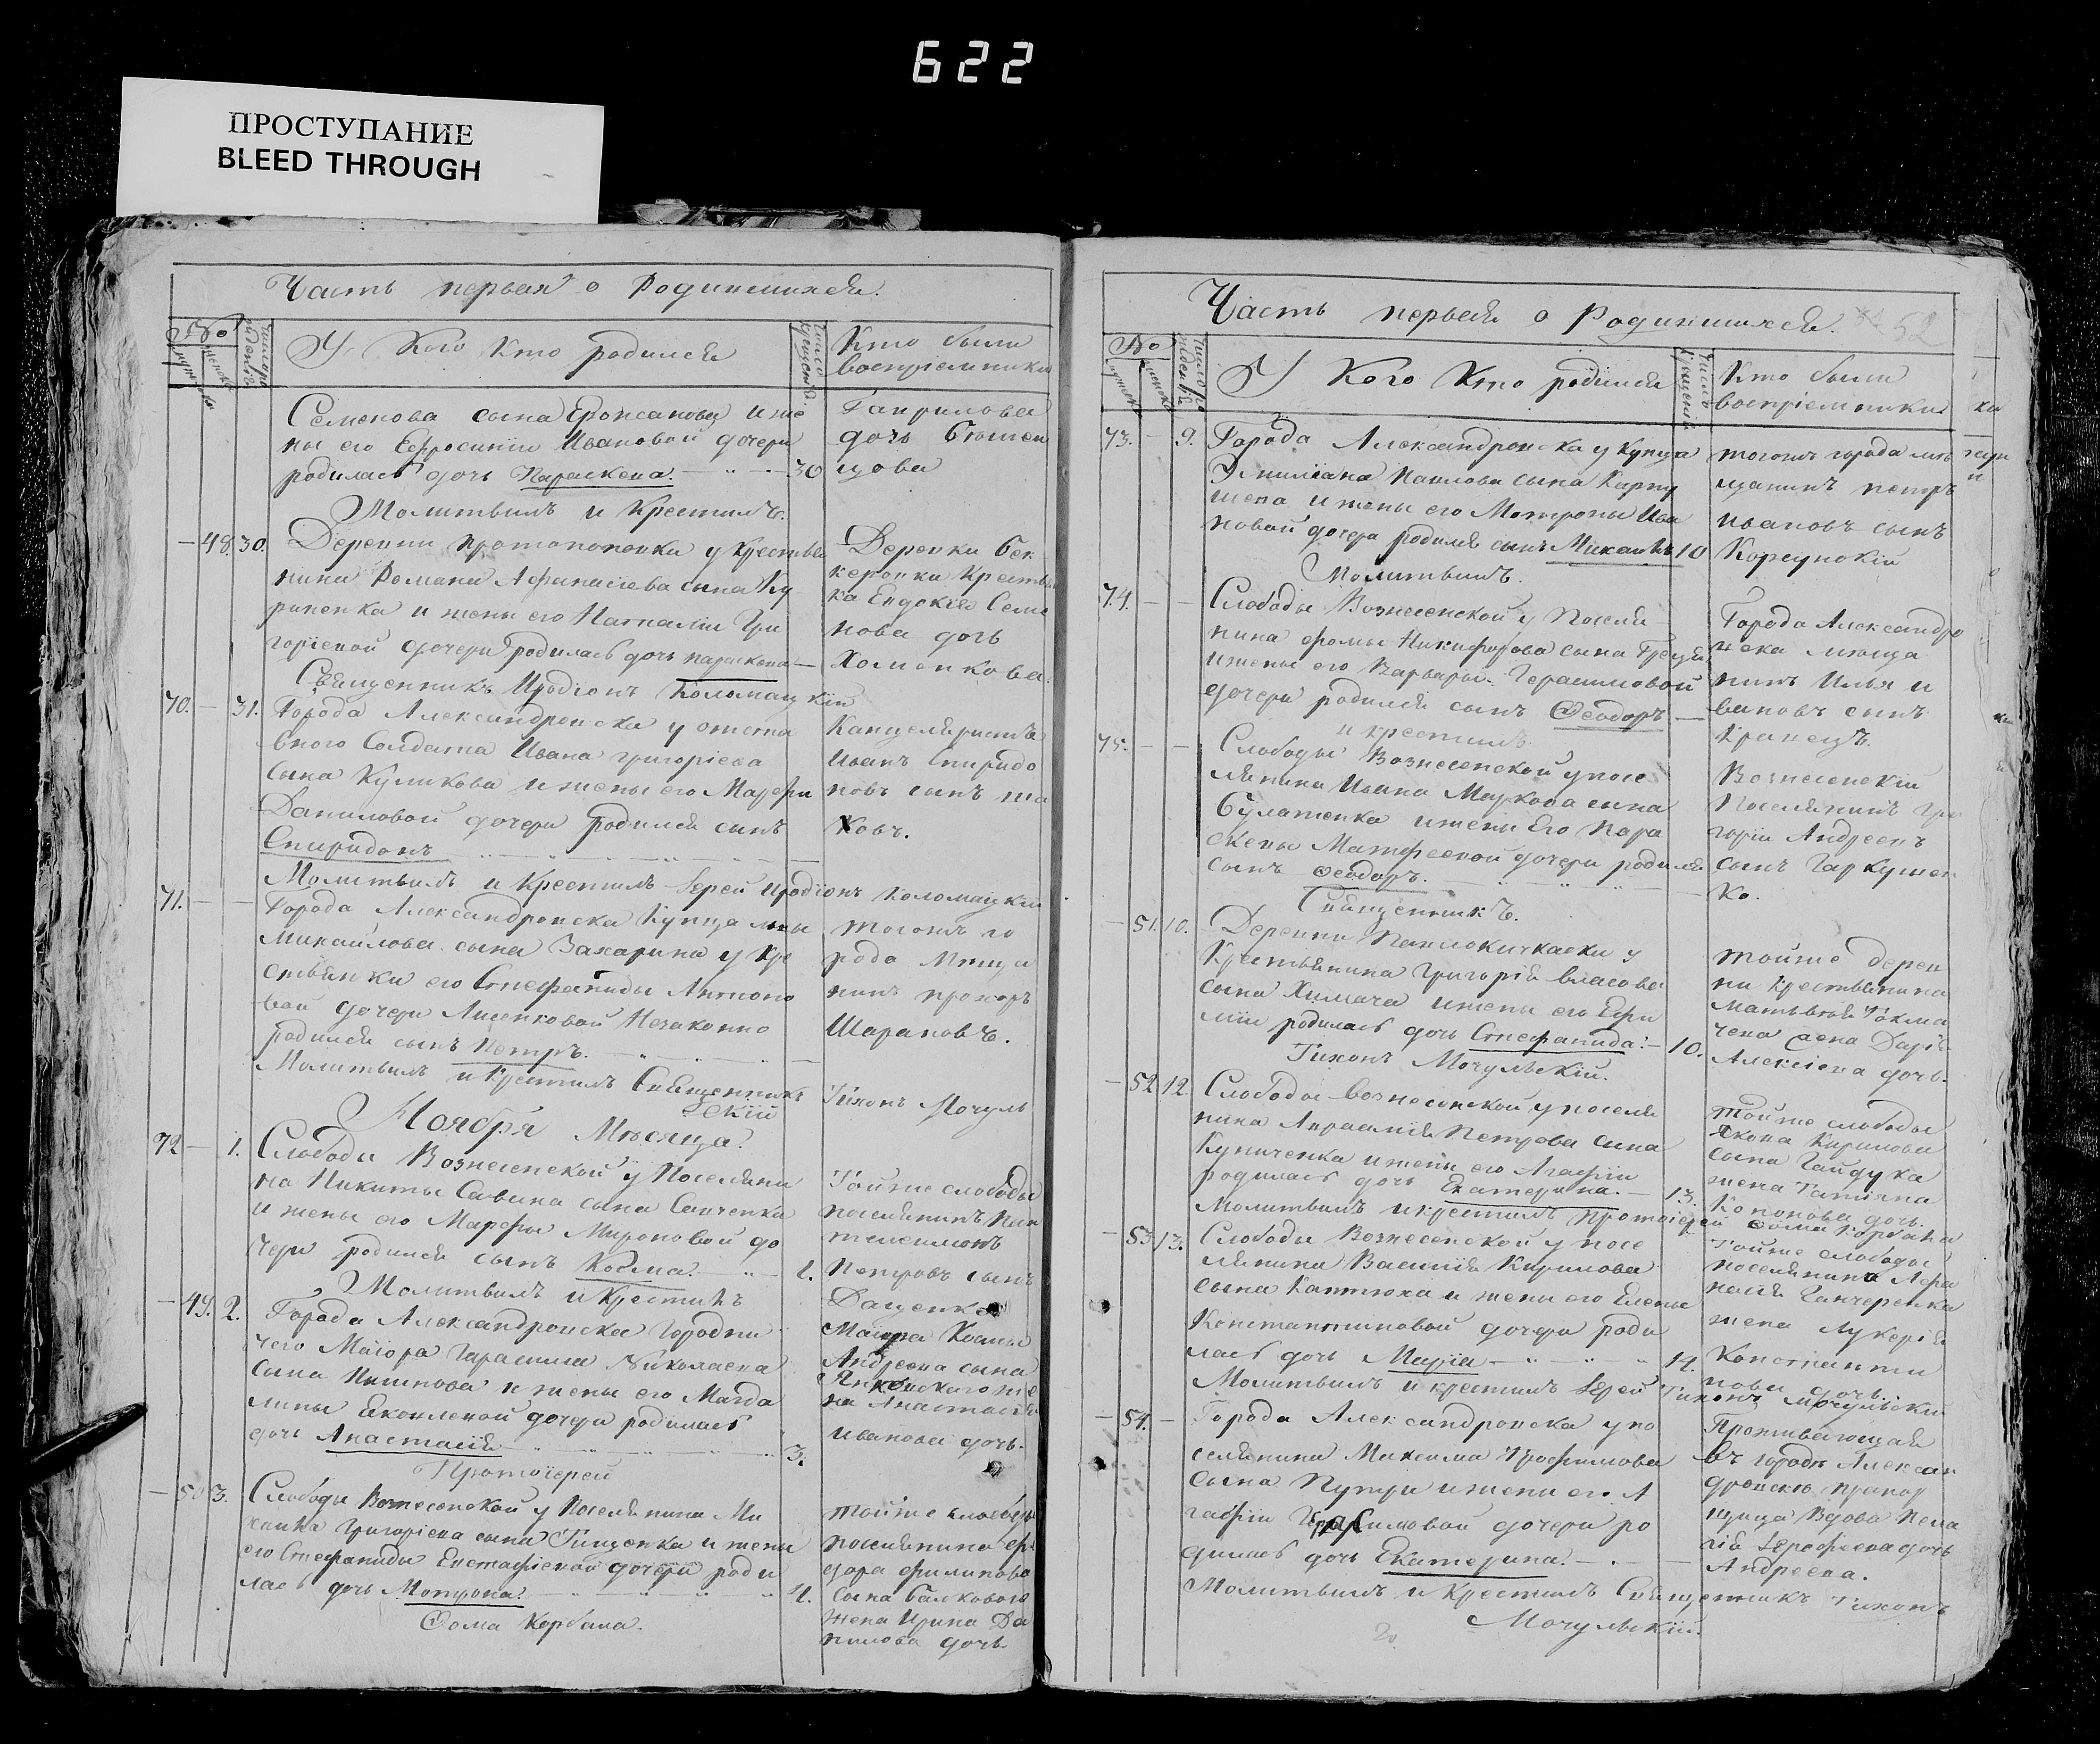 622
ПРОСТУПАНИЕ
BLEED THROUGH
Часть первая о Родившихся.
№
У Кого Кто родился
Кто были
воспріемники
Семенова сына и же
ны его Ефросиніи Ивановой дочери
родилась дочь Параскева. 30
Молитвилъ и Крестилъ.
Гаврилова
дочь
цова
48. 30. Деревни Протопоповки у Крестья
нина Романа Афанасіева сына
и жены его Наталіи Гри
горіевой дочери родилась дочь параскева
Священникъ Иродіонъ Коломацкій
Деревни Бек
керовки Крестья
ка Евдокія Семе
нова дочь
Хоменкова.
70. 31. Города Александровска у отста
вного Солдата Ивана григоріева
сына Куликова и жены его Марфы
Даниловой дочери родился сынъ
Спиридонъ
Молитвилъ и Крестилъ Іерей Иродіонъ Коломацкій
Канцеляристъ
Иванъ Спиридо
новъ сынъ
ковъ.
71. Города Александровска Купца
Михайлова сына Захарина у Кре
стьянки его Стефаниды Антоно
вой дочери Лисенковой Незаконно
родился сынъ Петръ.
Молитвилъ и Крестилъ Священникъ Тихонъ Мочуль
скій
тогожъ го
рода Мѣща
нинъ прохоръ
Шараповъ.
Ноября Мѣсяца.
72 1. Слободы Вознесенской у Поселяни
на Никиты Савина сына Савченка
и жены его Марфы Мироновой до
чери родился сынъ Косма. 2.
Молитвилъ и Крестилъ
Тойже слободы
поселянинъ Пан
телеимонъ
Петровъ сынъ
Даценко
49. 2. Города Александровска Городни
чего Маіора Гарасима Николаева
сына Пишнова и жены его Магда
лины Яковлевой дочери родилась
дочь Анастасія 3.
Протоіерей
Маіора Космы
Андреева сына
Янковскаго же
на Анастасія
Иванова дочь.
50 3. Слободы Вознесенской у Поселянина Ми
хаила Григоріева сына Гиценка и жены
его Стефаниды Евстафіевой дочери роди
лась дочь Мотрона. 4.
Ѳома Корбана.
тойже слободы
поселянина Фе
дора филипова
сына Балковаго
жена Ирина Да
нилова дочь.
Часть первая о Родившихся.
52
№
У Кого Кто родился
Кто были
воспріемники
73. 9. Города Александровска у купца
Эмиліана Павлова сына Карпу
шева и жены его Мотроны Ива
новой дочери родился сынъ Михаилъ 10
Молитвилъ.
тогожъ города мѣ
щанинъ петръ
Ивановъ сынъ
Корсунскій
74. Слободы Вознесенской у Поселя
нина фомы Никифорова сына
и жены его Варвары Герасимовой
дочери родился сынъ Ѳеодоръ
и крестилъ
Города Александро
вска мѣща
нинъ Илья и
вановъ сынъ
Кравецъ.
75. Слободы Вознесенской у посе
лянина Ивана Маркова сына
Булатенка и жены Его Пара
скевы Матфеевой дочери родился
сынъ Ѳеодоръ.
Священникъ.
Вознесенскій
Поселянинъ Гри
горій Андреевъ
сынъ Гаркушен
ко.
51. 10. Деревни Павлокичкаски у
Крестьянина Григорія Власова
сына Химача и жены его Ефи
міи родилась дочь Стефанида. 10.
Тихонъ Мочульскій.
тойже дерев
ни крестьянина
Матьвѣя Токма
чева жена Дарія
Алексіева дочь.
52 12. Слободы Вознесенской у поселя
нина Авраамія Петрова сына
Купиченка и жены его Агафіи
родилась дочь Екатерина. 13.
Молитвилъ и крестилъ протоіерей Ѳома Корбана
Тойже слободы
Якова Кирилова
сына Гайдука
жена Татіяна
Кононова дочь.
53 13. Слободы Вознесенской у посе
лянина Василія Кирилова
сына Каптюха и жены его Елены
Константиновой дочери роди
лась дочь Марія 14.
Молитвилъ и крестилъ Іерей Тихонъ Мочульскій
Тойже слободы
поселянина Афа
насія Ганчеренка
жена Лукерія
Константи
нова дочь.
54. Города Александровска у по
селянина Максима Трофимова
сына Путри и жены его А
гафіи Герасимовой дочери ро
дилась дочь Екатерина.
Молитвилъ и Крестилъ Священникъ Тихонъ
Мочульскій.
Проживающая
въ городѣ Алексан
дровскѣ прапор
щица Вдова Пела
гія Іерофеева дочь
Андреева.